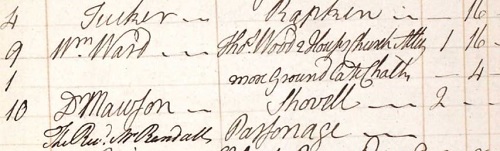 4 Tucker — Rapken — — 16
9 Wm. Ward — Thos. Wood 2 Houps Church Alley 1 16
1 more Ground late Chalk — 4
10 Dr Mawson — Shovell — 2 —
The Revd. Mr Randall Parsonage —